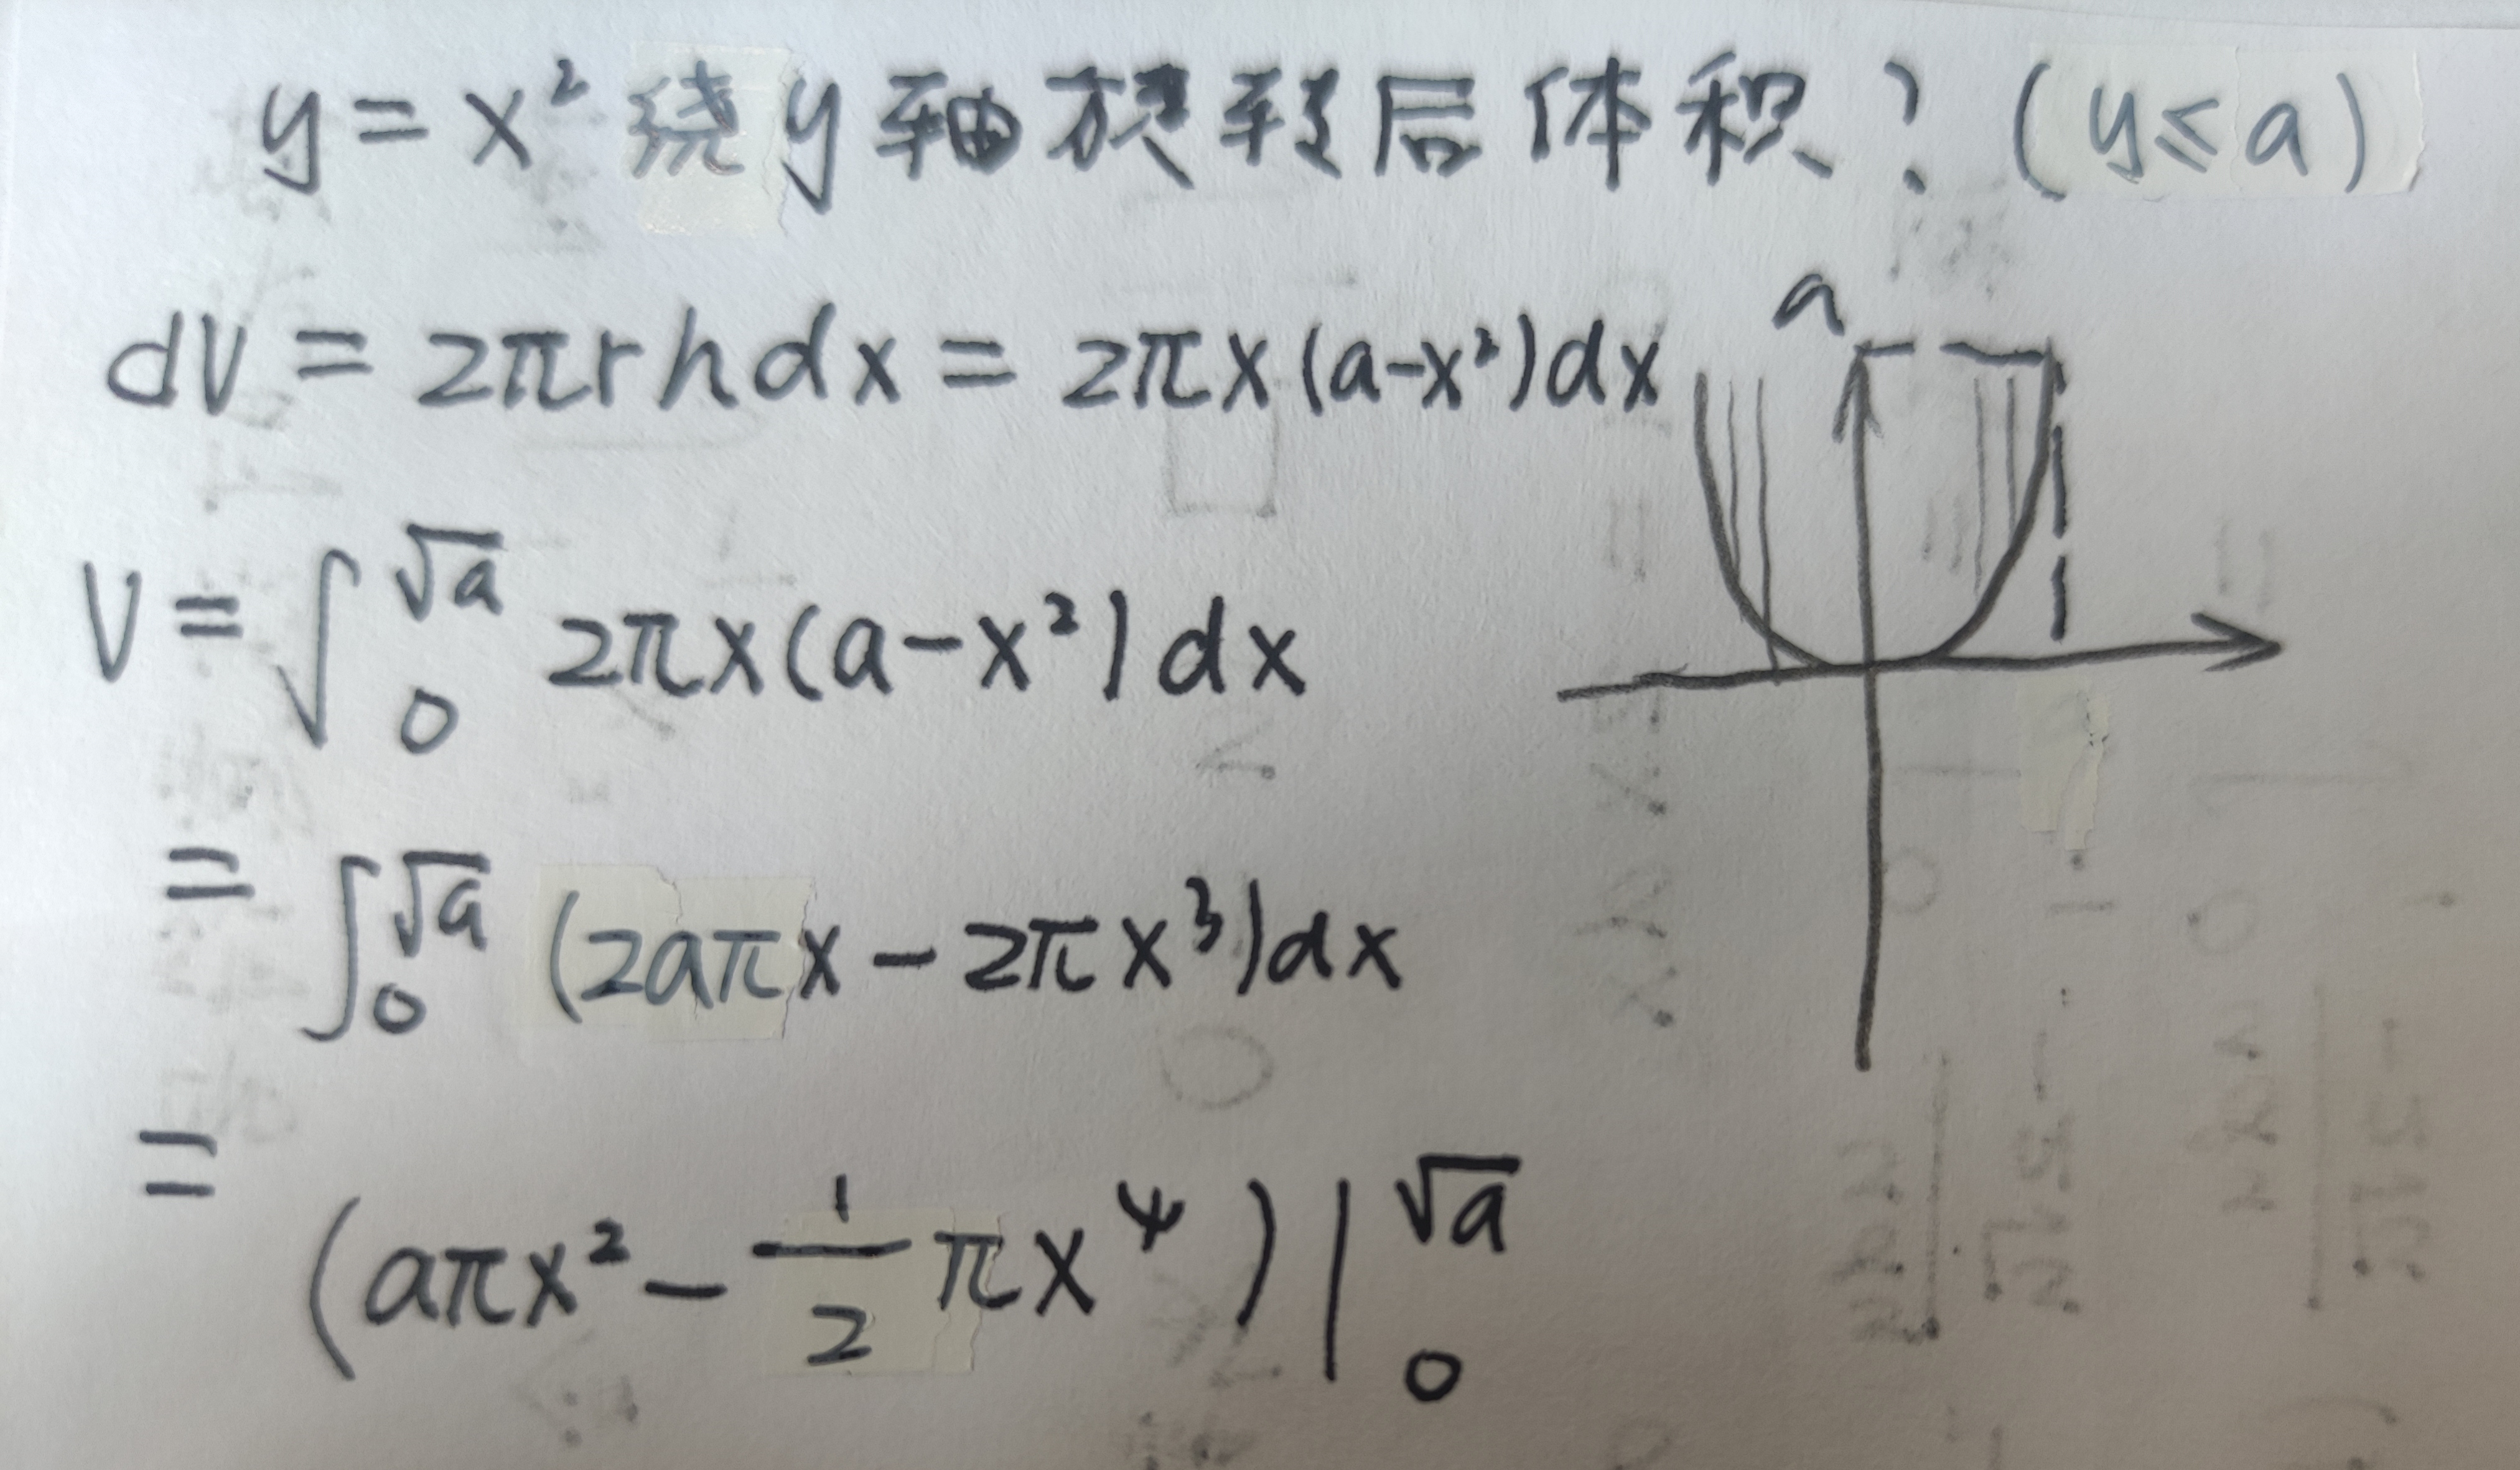 y = x² 绕y轴旋转后体积? (y ≤ a)
dV = 2πrhdx = 2πx(a-x²)dx
a
V = ∫₀^√a 2πx(a-x²)dx
= ∫₀^√a (2aπx - 2πx³)dx
= (aπx² - 1/2 πx⁴)|₀^√a